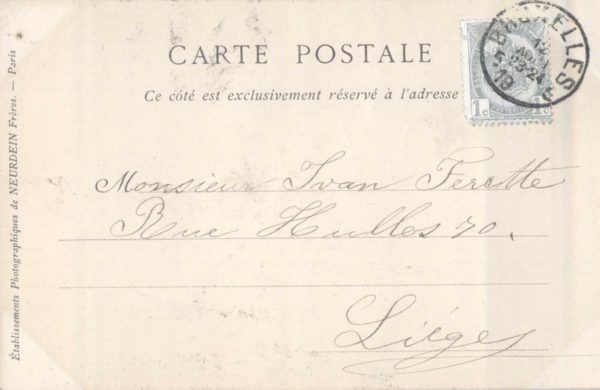 CARTE POSTALE
Ce côté est exclusivement réservé à l'adresse
BRUXELLES
1c 1c
Monsieur Ivan Ferette
Rue Hulles 70.
Liéges
Établissements Photographiques de NEURDEIN Frères. — Paris